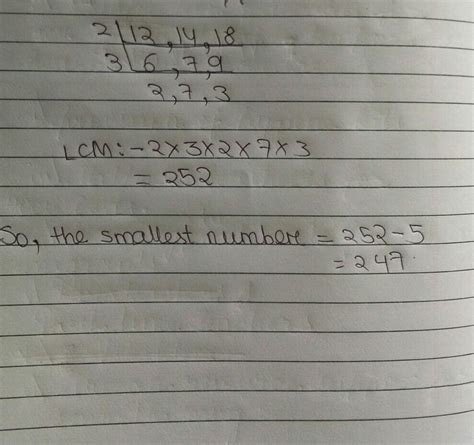 2 | 12, 14, 18
3 | 6, 7, 9
2, 7, 3
LCM:- 2×3×2×7×3
= 252
So, the smallest number = 252-5
= 247.